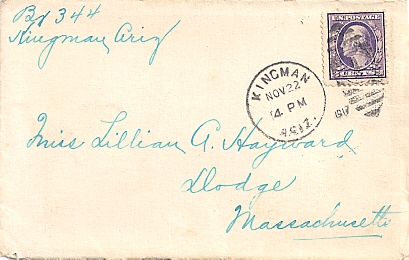 Bx 344
Kingman, Ariz
U.S. POSTAGE
3 CENTS 3
KINGMAN
NOV 22
4 PM
ARIZ.
1917
Miss Lillian A. Hayward
Dodge
Massachusetts